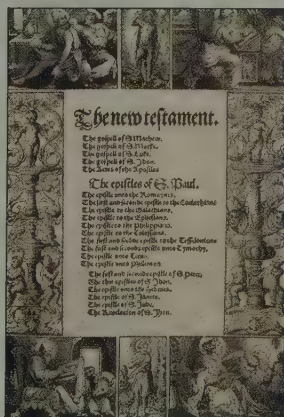 The new testament.
The gospell of S. Mathew.
The gospell of S. Marke.
The gospell of S. Luke.
The gospell of S. Jhon.
The Actes of the Apostles
The epistles of S. Paul.
The epistle unto the Romaynes.
The first and seconde epistle to the Corinthians
The epistle to the Galathians,
The epistle to the Ephesians,
The epistle to the Philippians.
The epistle to the Colossians,
The first and seconde epistle to the Tessalonians
The first and seconde epistle unto Tymothy,
The epistle unto Titus.
The epistle unto Philemon
The first and seconde epistle of S. Peter,
The thre epistles of S. Jhon,
The epistle unto the Hebrues,
The epistle of S. James.
The epistle of S. Jude,
The Revelacion of S. Jhon.